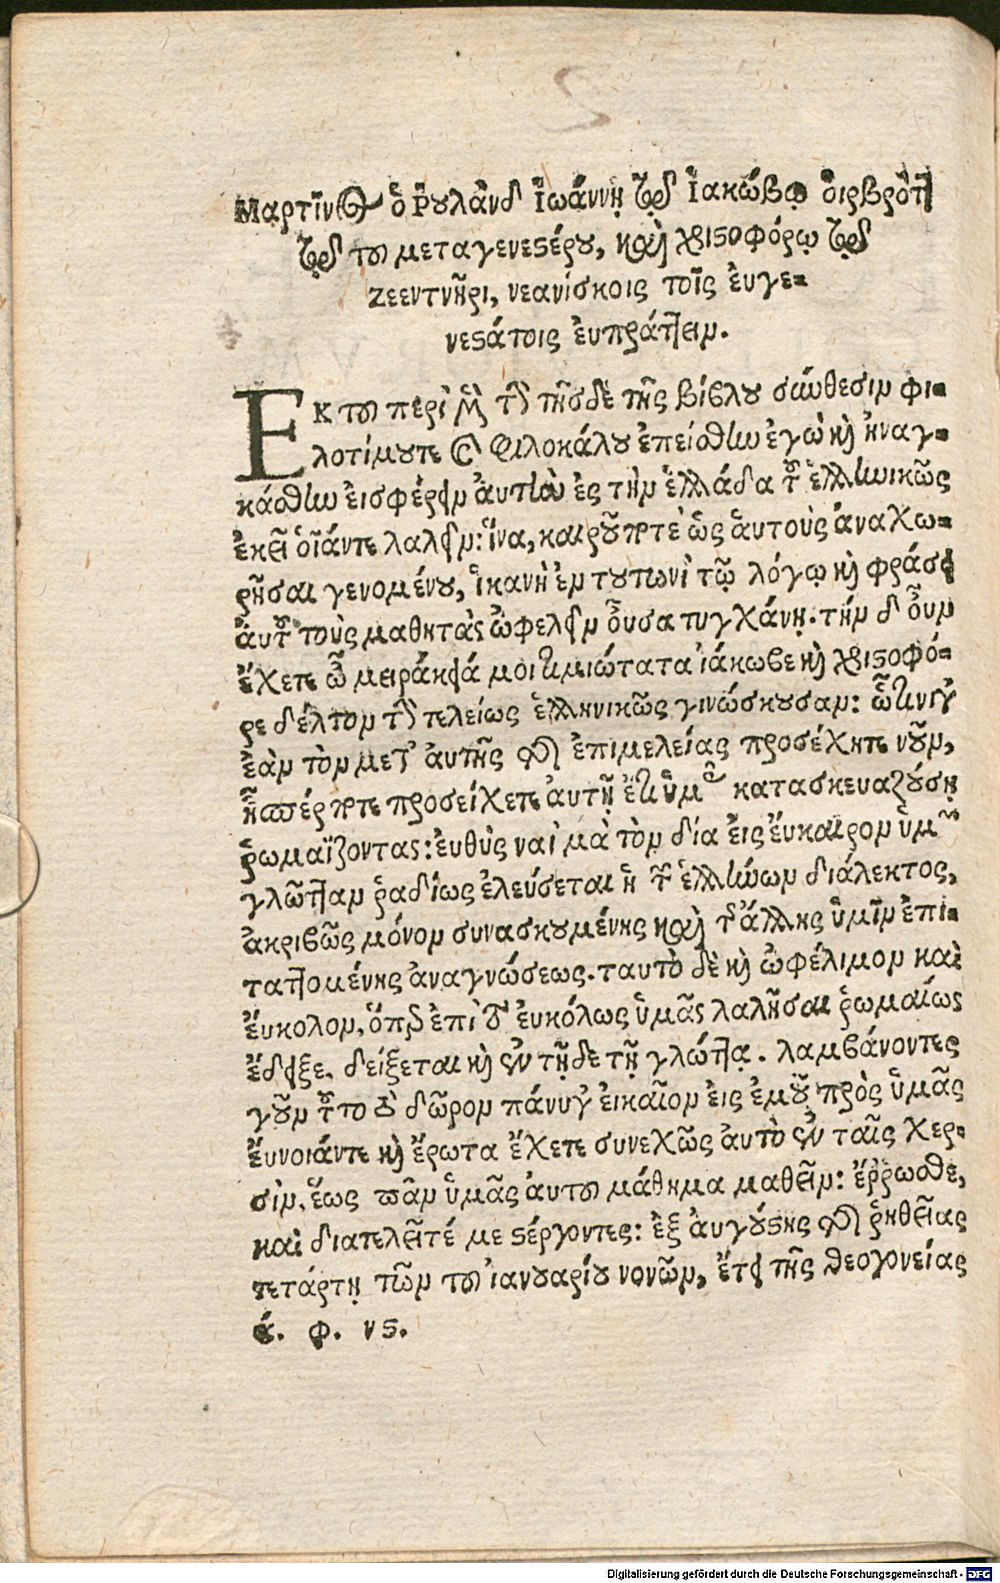 Μαρτῖνος ὁ Ρουλὰνδ Ἰωάννῃ Ἰακώβῳ
τοῦ μεταγενεστέρου, καὶ χριστοφόρῳ
ζεεντνῆρι, νεανίσκοις τοῖς ἐυγε-
νεστάτοις ἐυπράττειν.
Εκ τοῦ περὶ τὴν τῆσδε τῆς βίβλου σύνθεσιν φι-
λοτίμουτε καὶ φιλοκάλου ἐπείσθην ἐγὼ καὶ ἠναγ-
κάσθην εἰσφέρειν ἀυτὴν ἐς τὴν ἑλλάδα ἑλληνικῶς
ἐκεῖ ὁῖάντε λαλεῖν: ἵνα, καιροῦ ποτὲ ὡς ἀυτοὺς ἀναχω-
ρῆσαι γενομένου, ἱκανὴ ἐν τουτωνὶ τῷ λόγῳ καὶ φράσει
τοὺς μαθητὰς ὠφελεῖν οὖσα τυγχάνῃ. τὴν δ οὖν
ἔχετε ὦ μειράκειά μοι τιμιώτατα ἰάκωβε καὶ χριστοφό-
ρε δέλτον τελείως ἑλληνικῶς γινώσκουσαν:
ἐὰν τὸν μετ ἀυτῆς ἐπιμελείας προσέχητε νοῦν,
ᾗπέρ ποτε προσείχετε ἀυτῇ ἔτι κατασκευαζούσῃ
ῥωμαΐζοντας: ἐυθὺς ναὶ μὰ τὸν δία ἐις ἔυκαιρον ὑμῶν
γλῶτταν ῥαδίως ἐλεύσεται ἡ τῶν ἑλλήνων διάλεκτος,
ἀκριβῶς μόνον συνασκουμένης καὶ τῆς ἄλλης ὑμῖν ἐπι-
ταττομένης ἀναγνώσεως. ταυτὸ δὲ καὶ ὠφέλιμον καὶ
ἔυκολον, ὅπερ ἐπὶ τοῦ ἐυκόλως ὑμᾶς λαλῆσαι ῥωμαίως
ἔδειξε. δείξεται καὶ ἐν τῇδε τῇ γλώττᾳ. λαμβάνοντες
γοῦν τοῦτο τὸ δῶρον πάνυγ ἐικαῖον ἐις ἐμοῦ πρὸς ὑμᾶς
ἔυνοιάντε καὶ ἔρωτα ἔχετε συνεχῶς ἀυτὸ ἐν ταῖς χερ-
σὶν, ἕως πᾶν ὑμᾶς ἀυτοῦ μάθημα μαθεῖν: ἔῤῥωσθε,
καὶ διατελεῖτέ με στέργοντες: ἐξ ἀυγούστης τῆς ῥηθείας
τετάρτῃ τῶν τοῦ ἰανουαρίου νονῶν, ἔτει τῆς θεογονείας
ά. φ. νς.
Digitalisierung gefördert durch die Deutsche Forschungsgemeinschaft - DFG